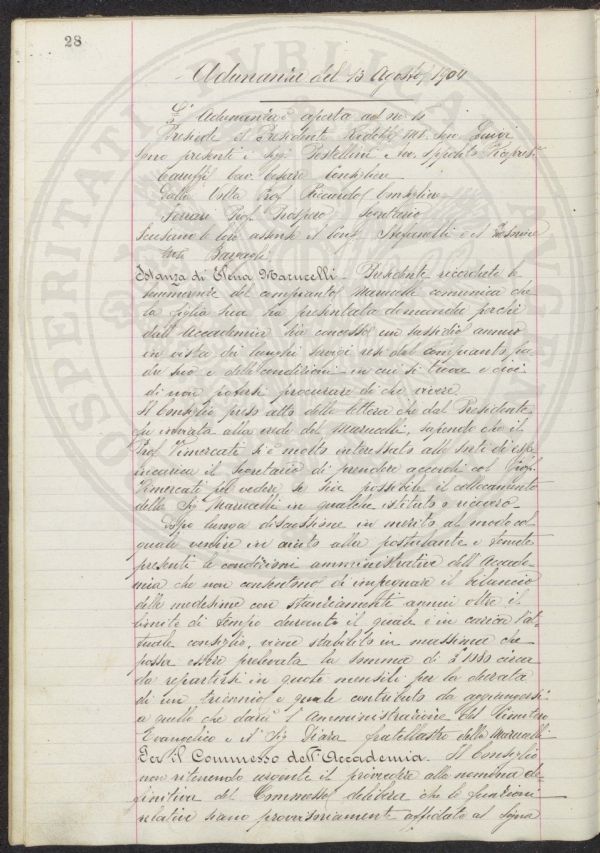 28
Adunanza del 13 Agosto 1904
L'Adunanza è aperta ad ore 14
Presiede il Presidente March. Luigi
Sono presenti i Sigg. Postellini Avv. Ippolito
Carega Cav. Cesare Consigliere
Dalla Volta Prof. Riccardo Consigliere
Ferrari Prof. Prospero Segretario
Scusano la loro assenza il Cons. Stefanelli e il
Istanza di Elena Marucelli – Presidente ricordate le
benemerenze del compianto Marucelli comunica che
la figlia sua, ha presentata domanda perché
dall'Accademia sia concesso un sussidio annuo
in vista dei lunghi servigi resi dal compianto pa-
dre suo e delle condizioni in cui si trova e cioè
di non potersi procurare di che vivere.
Il Consiglio preso atto della lettera che dal Presidente
fu inviata alla erede del Marucelli, sapendo che il
Prof. Vimercati si è molto interessato alle sorti di essa
incarica il Segretario di prendere accordi col Prof.
Vimercati per vedere se sia possibile il collocamento
della Sig. Marucelli in qualche istituto o ricovero.
Dopo lunga discussione in merito al modo col
quale venire in aiuto alla postulante e tenute
presenti le condizioni amministrative dell'Accade-
mia che non consentono di impegnare il bilancio
della medesima con stanziamenti annui oltre il
limite di tempo durante il quale è in carica l'at-
tuale consiglio, viene stabilito in massima che
possa essere prelevata la somma di £ 1080 circa
da repartirsi in quote mensili per la durata
di un triennio, e quale contributo da aggiungersi
a quello che darà l'Amministrazione del Cimitero
Evangelico e il Sig. Diara fratellastro della Marucelli
Per il Commesso dell'Accademia. Il Consiglio
non ritenendo urgente il provvedere alla nomina de-
finitiva del Commesso delibera che le funzioni
relative siano provvisoriamente affidate al Signor